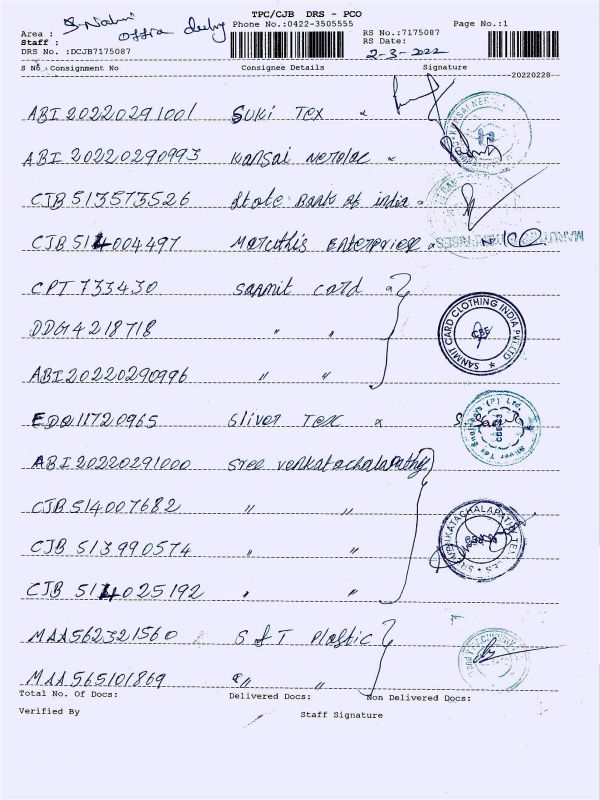 TPC/CJB DRS - PCO
Phone No.:0422-3505555
Page No.:1
Area :
Staff :
DRS No. :DCJB7175087
RS No.:7175087
RS Date:
2-3-2022
S No. Consignment No Consignee Details Signature
20220228
ABI 20220291001 Suki Tex
ABI 20220290993 Kansai Nerolac
CJB 513573526 State Bank of india
CJB 514004497 Maruthis Enterprises
CPT 733430 Sanmit card
DDG 4218718 " "
SANMIT CARD CLOTHING INDIA PVT LTD
CBE
ABI 20220290996 " "
EDQ 11720965 Sliver Tex
ABI 20220291000 Sree Venkatachalapathy
CJB 514007682 " "
CJB 513990574 " "
CJB 514025192 " "
MAA 562321560 S & T Plastic
MAA 565101869 " "
Total No. Of Docs: Delivered Docs: Non Delivered Docs:
Verified By Staff Signature